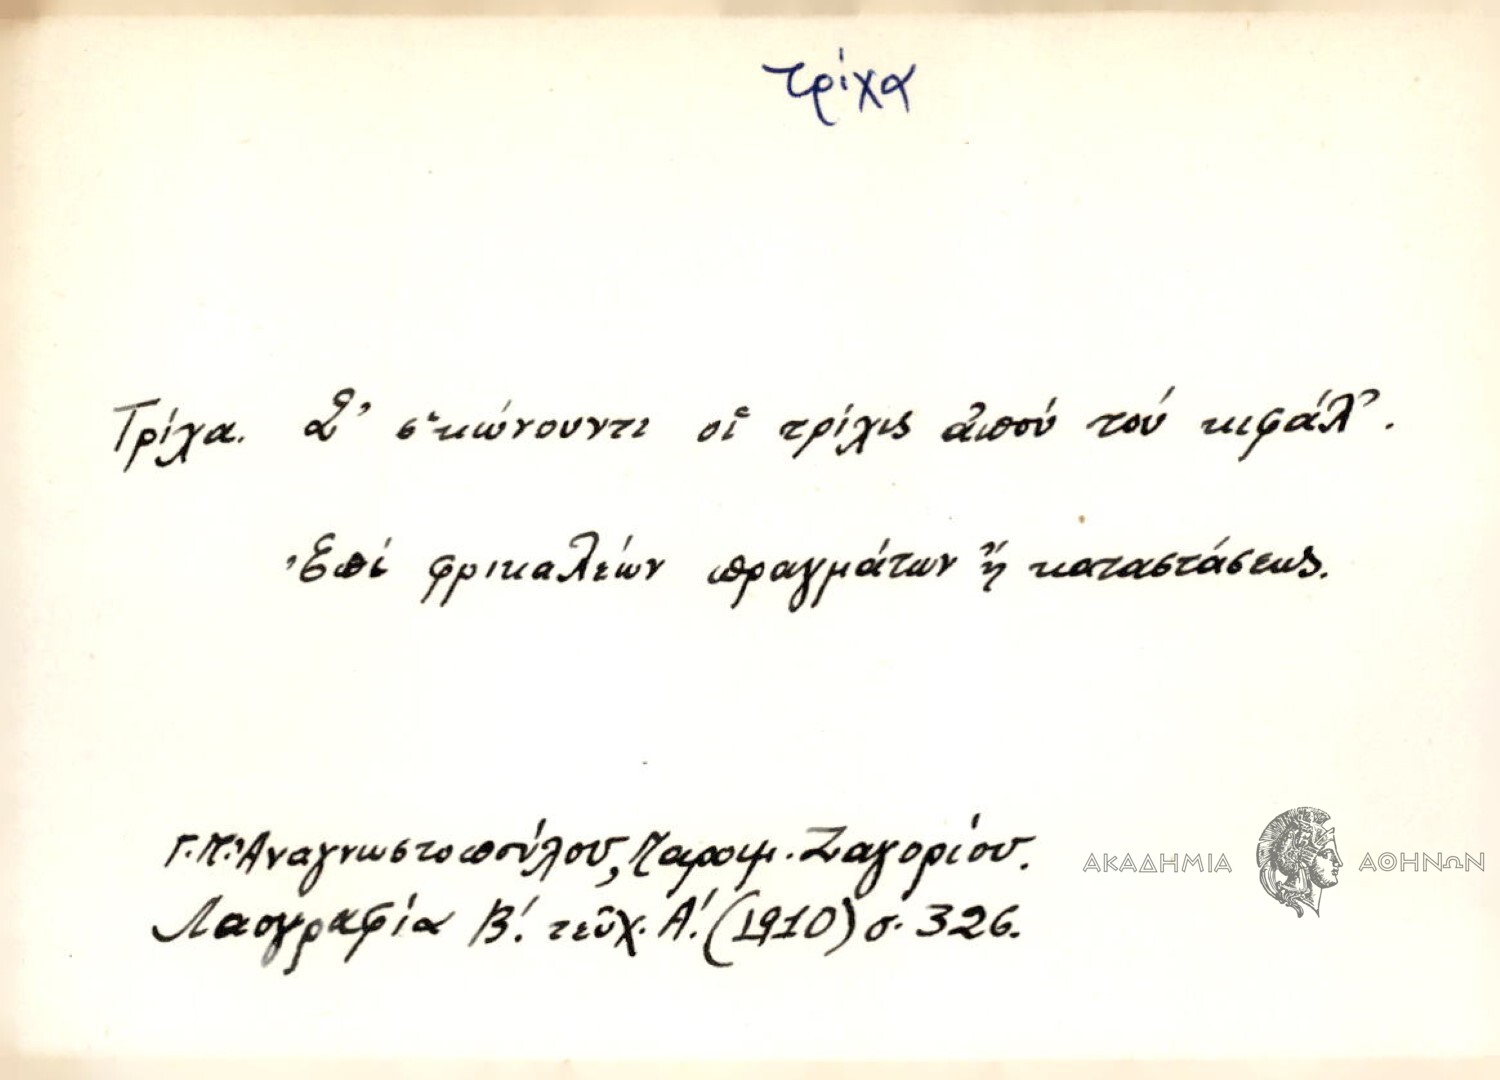 τρίχα
Τρίχα. Σ' σ'κώνουντι οἱ τρίχις ἀπού τού κιφάλ'.
Ἐπί φρικαλέων πραγμάτων ἤ καταστάσεως.
Γ.Π. Ἀναγνωστοπούλου, Παροιμ. Ζαγορίου.
Λαογραφία Β΄. τεῦχ. Α΄. (1910) σ. 326.
ΑΚΑΔΗΜΙΑ ΑΘΗΝΩΝ